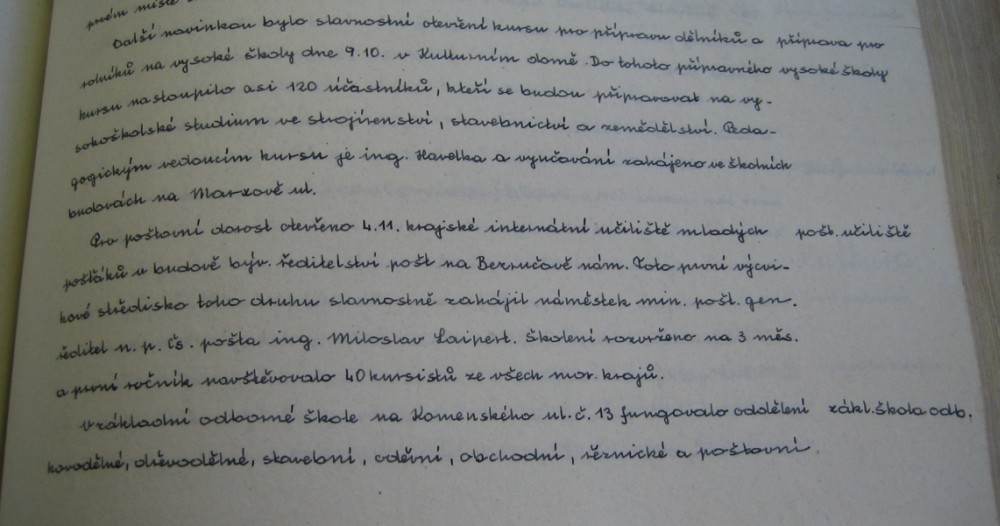 ném místě
Další novinkou bylo slavnostní otevření kursu pro přípravu dělníků a příprava pro
rolníků na vysoké školy dne 9.10. v Kulturním domě. Do tohoto přípravného vysoké školy
kursu nastoupilo asi 120 účastníků, kteří se budou připravovat na vy-
sokoškolské studium ve strojírenství, stavebnictví a zemědělství. Peda-
gogickým vedoucím kursu je ing. Havelka a vyučování zahájeno ve školních
budovách na Marxově ul.
Pro poštovní dorost otevřeno 4.11. krajské internátní učiliště mladých pošt. učiliště
pošťáků v budově býv. ředitelství pošt na Bezručově nám. Toto první výcvi-
kové středisko toho druhu slavnostně zahájil náměstek min. pošt. gen.
ředitel n. p. Čs. pošta ing. Miloslav Laipert. Školení rozvrženo na 3 měs.
a první ročník navštěvovalo 40 kursistů ze všech mor. krajů.
V základní odborné škole na Komenského ul. č. 13 fungovalo oddělení zákl. škola odb.
kovodělné, dřevodělné, stavební, oděvní, obchodní, řeznické a poštovní.